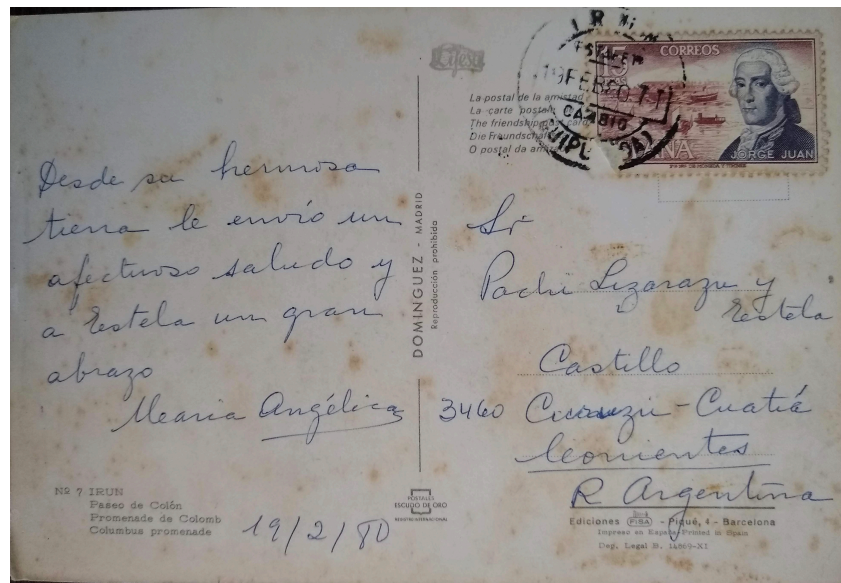 Desde su hermosa
tierra le envío un
afectuoso saludo y
a Estela un gran
abrazo
Maria Angélica
Nº 7 IRUN
Paseo de Colón
Promenade de Colomb
Columbus promenade
19/2/80
DOMINGUEZ - MADRID
Reproducción prohibida
POSTALES
ESCUDO DE ORO
REGISTRO INTERNACIONAL
Cifesa
La postal de la amistad
La carte postale
The friendship post card
Die Freundschaft
O postal da ami
IRUN
19 FEB 80
CAMBIO
(GUIPUZCOA)
15
CORREOS
ESPAÑA
JORGE JUAN
Sr
Pachi Lizarazu y
Estela
Castillo
3460 Curuzú-Cuatiá
Corrientes
R Argentina
Ediciones FISA - Piqué, 4 - Barcelona
Impreso en España-Printed in Spain
Dep. Legal B. 14869-XI